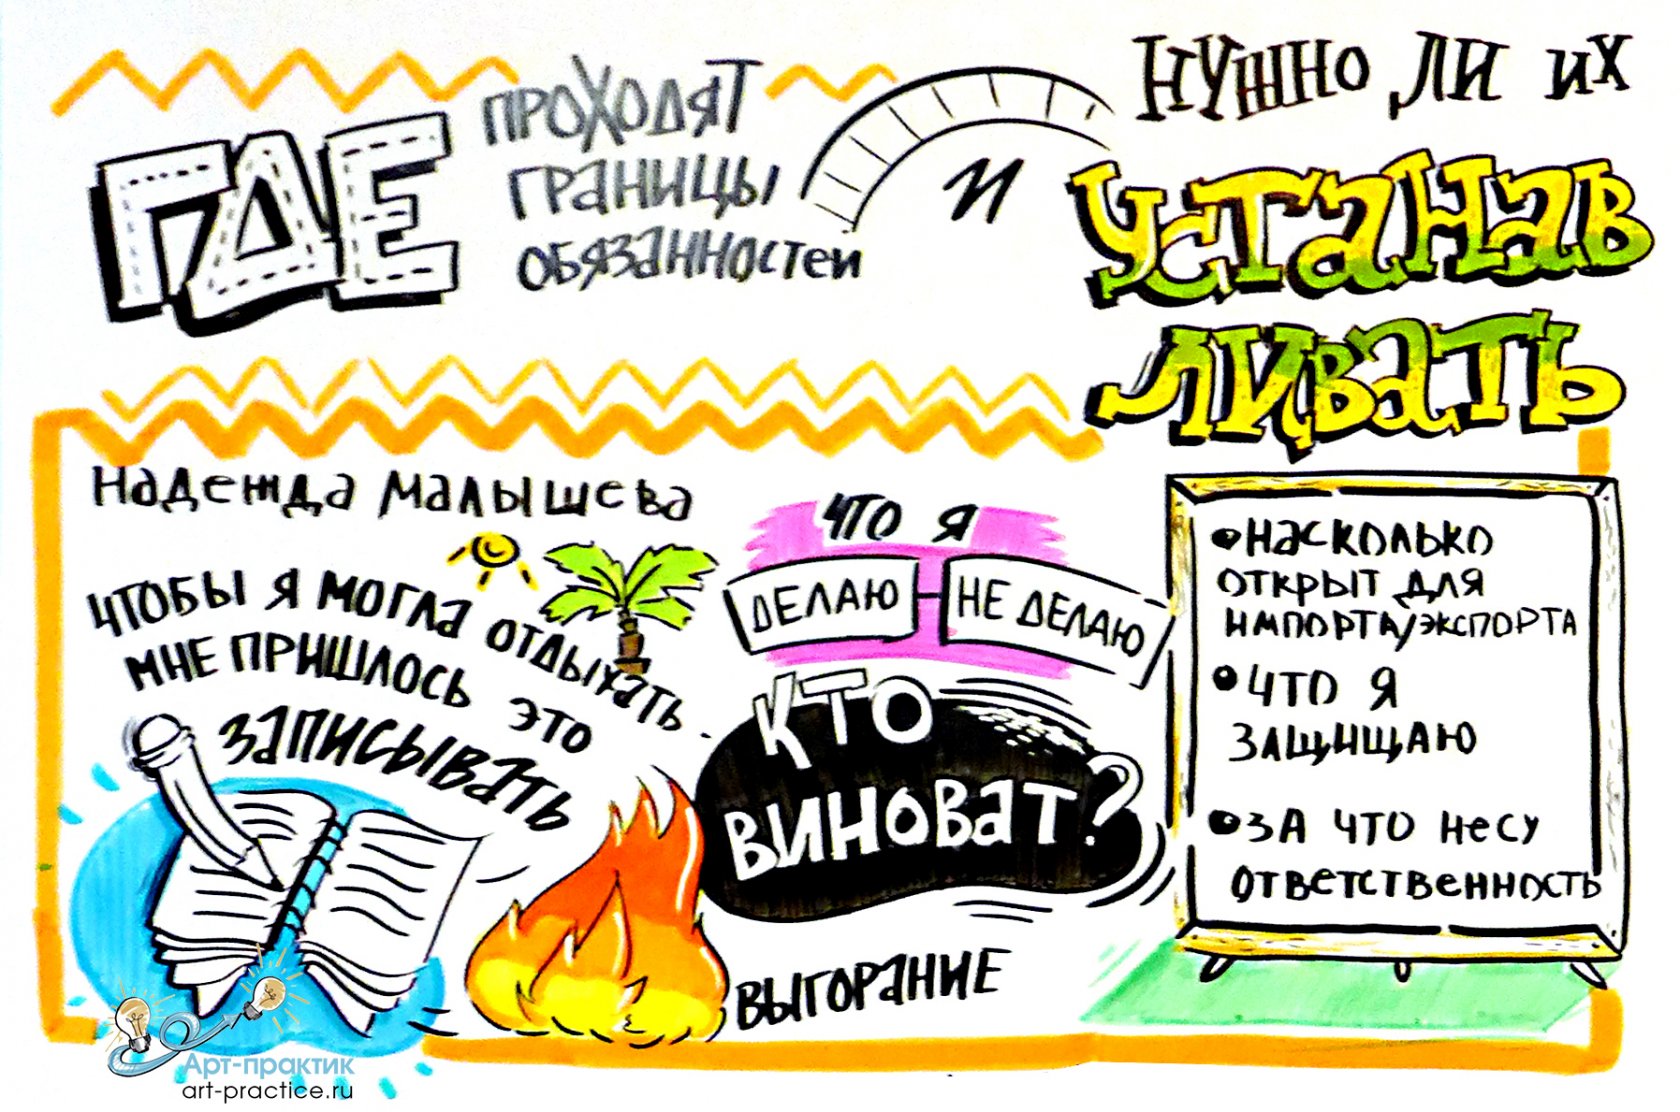 ГДЕ
ПРОХОДЯТ
ГРАНИЦЫ
ОБЯЗАННОСТЕЙ
И
НУЖНО ЛИ ИХ
УСТАНАВ
ЛИВАТЬ
НАДЕЖДА МАЛЫШЕВА
ЧТОБЫ Я МОГЛА ОТДЫХАТЬ
МНЕ ПРИШЛОСЬ ЭТО
ЗАПИСЫВАТЬ
ЧТО Я
ДЕЛАЮ - НЕ ДЕЛАЮ
КТО
ВИНОВАТ?
ВЫГОРАНИЕ
• НАСКОЛЬКО
ОТКРЫТ ДЛЯ
ИМПОРТА/ЭКСПОРТА
• ЧТО Я
ЗАЩИЩАЮ
• ЗА ЧТО НЕСУ
ОТВЕТСТВЕННОСТЬ
Арт-практик
art-practice.ru